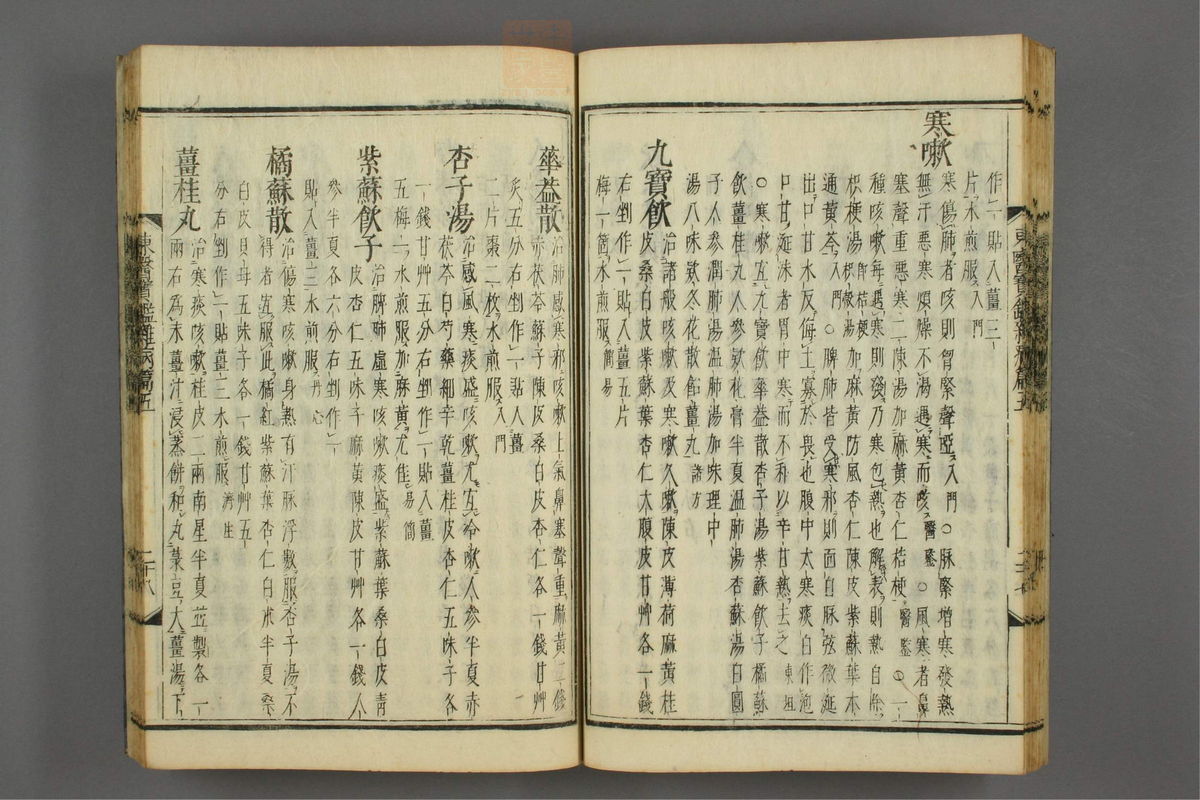 作一貼入薑三
片水煎服入門
寒嗽
寒傷肺者咳則胷緊聲啞入門○脉緊增寒發熱
無汗惡寒煩燥不渴遇寒而咳醫鑑○風寒者鼻
塞聲重惡寒二陳湯加麻黃杏仁桔梗醫鑑○一
種咳嗽每遇寒則發乃寒包熱也解表則熱自除
枳梗湯卽桔梗枳梗湯加麻黃防風杏仁陳皮紫蘇葉木
通黃芩入門○脾肺皆受寒邪則面白脉弦微涎
出口甘水反侮土寡於畏也腹中大寒痰白作泡
口甘涎沫者胃中寒而不和以辛甘熱去之東垣
○寒嗽宜九寶飮華盖散杏子湯紫蘇飮子橘蘇
飮薑桂丸人參款花膏半夏溫肺湯杏蘇湯白圓
子人參潤肺湯溫肺湯加味理中
湯八味款冬花散飴薑丸諸方
九寶飮
治諸般咳嗽及寒嗽久嗽陳皮薄荷麻黃桂
皮桑白皮紫蘇葉杏仁大腹皮甘艸各一錢
右剉作一貼入薑五片
梅一箇水煎服易簡
東醫寶鑑雜病篇五
華盖散
治肺感寒邪咳嗽上氣鼻塞聲重麻黃二錢
赤茯苓蘇子陳皮桑白皮杏仁各一錢甘艸
炙五分右剉作一貼入薑
二片棗二枚水煎服入門
杏子湯
治感風寒痰盛咳嗽尤宜冷嗽人參半夏赤
茯苓白芍藥細辛乾薑桂皮杏仁五味子各
一錢甘艸五分右剉作一貼入薑
五梅一水煎服加麻黃尤佳易簡
紫蘇飮子
治脾肺虛寒咳嗽痰盛紫蘇葉桑白皮靑
皮杏仁五味子麻黃陳皮甘艸各一錢人
參半夏各六分右剉作一
貼入薑三水煎服丹心
橘蘇散
治傷寒咳嗽身熱有汗脉浮數服杏子湯不
得者宜服此橘紅紫蘇葉杏仁白朮半夏桑
白皮貝母五味子各一錢甘艸五
分右剉作一貼薑三水煎服濟生
薑桂丸
治寒痰咳嗽桂皮二兩南星半夏並製各一
兩右爲末薑汁浸蒸餠和丸菉豆大薑湯下
東醫寶鑑雜病篇五
二十八